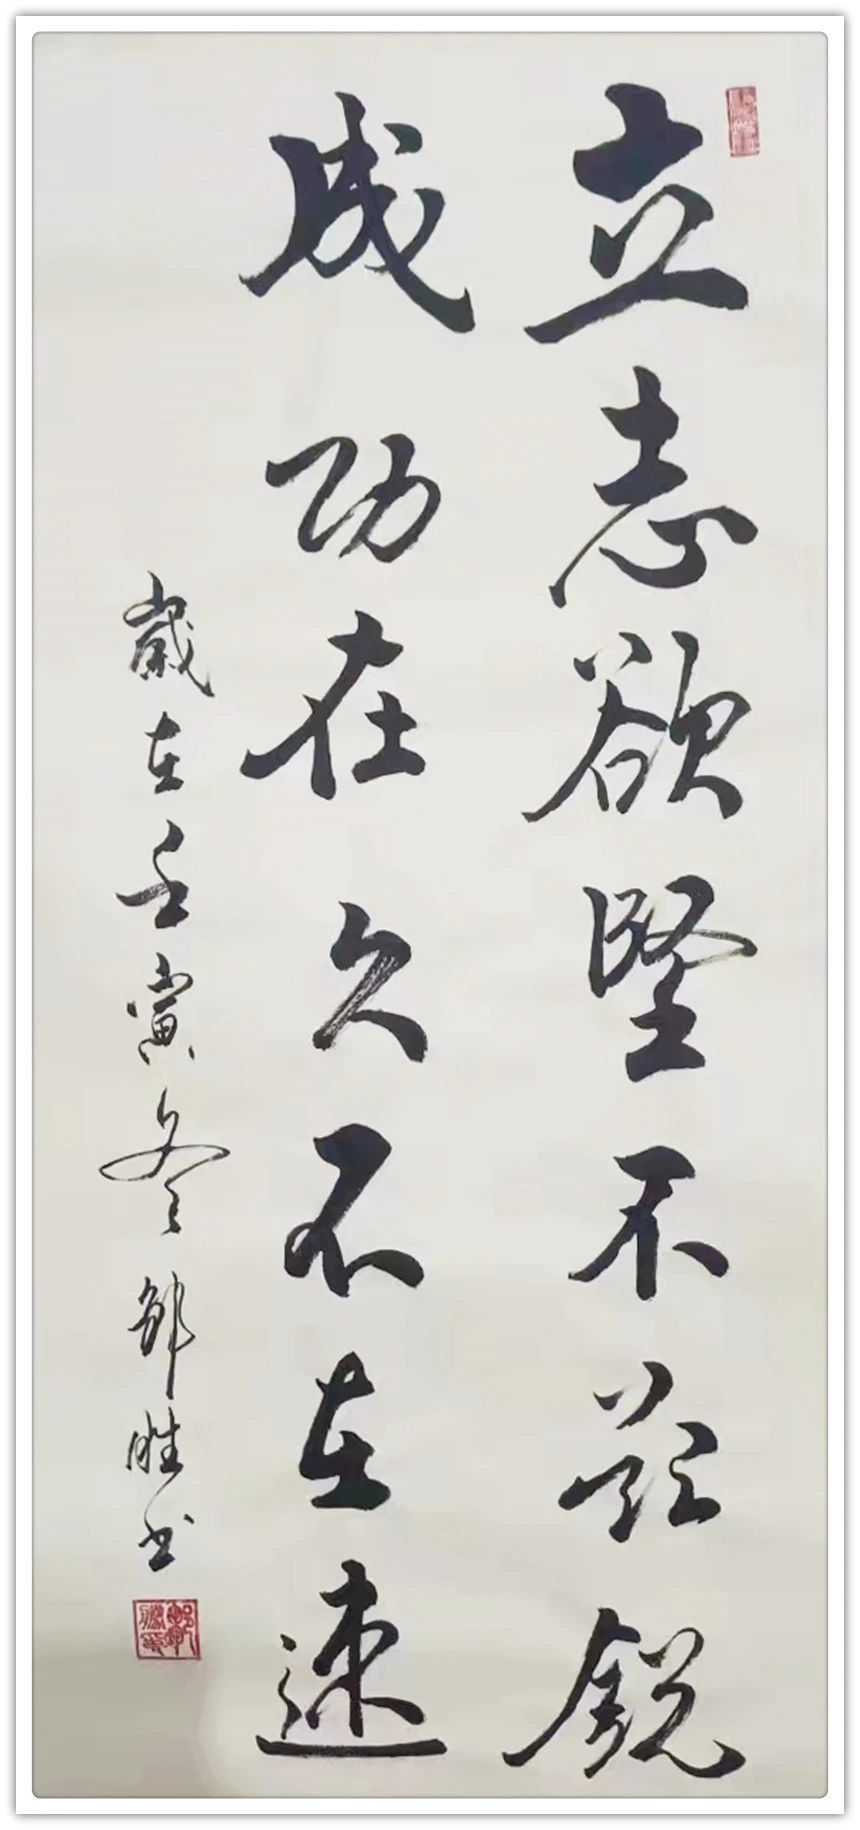 立志欲堅不欲銳
成功在久不在速
歲在壬寅冬邹胜书